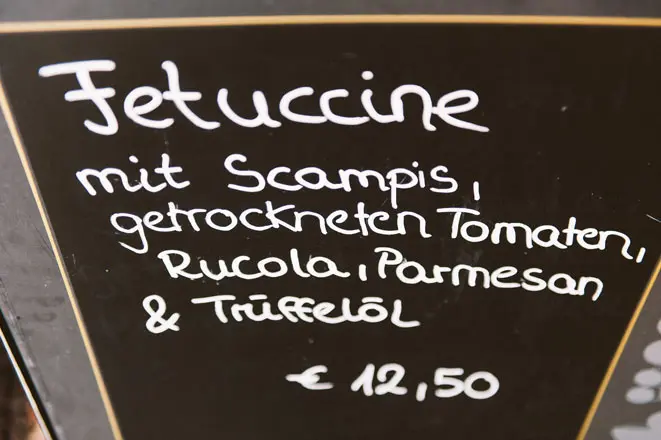 Fetuccine
mit Scampis,
getrockneten Tomaten,
Rucola, Parmesan
& Trüffelöl
€ 12,50